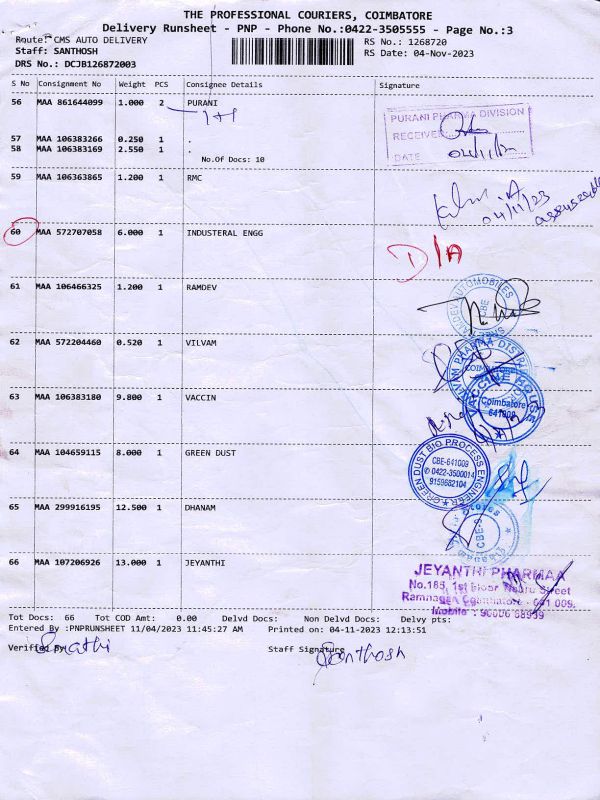 THE PROFESSIONAL COURIERS, COIMBATORE
Delivery Runsheet - PNP - Phone No.:0422-3505555 - Page No.:3
Route: CMS AUTO DELIVERY
Staff: SANTHOSH
DRS No.: DCJB126872003
RS No.: 1268720
RS Date: 04-Nov-2023
S No Consignment No Weight PCS Consignee Details Signature
56 MAA 861644099 1.000 2 PURANI
1+1
PURANI PHARMA DIVISION
RECEIVED
DATE 04/11/
57 MAA 106383266 0.250 1 .
58 MAA 106383169 2.550 1 .
No.Of Docs: 10
59 MAA 106363865 1.200 1 RMC
04/11/23
60 MAA 572707058 6.000 1 INDUSTERAL ENGG
D/A
61 MAA 106466325 1.200 1 RAMDEV
RAMDEV AUTOMOBILES
CBE
62 MAA 572204460 0.520 1 VILVAM
VILVAM PHARMA
COIMBATORE
63 MAA 106383180 9.800 1 VACCIN
VACCINE HOUSE
Coimbatore
641009
64 MAA 104659115 8.000 1 GREEN DUST
GREEN DUST BIO PROCESS ENGINEER
CBE-641009
0422-3500014
9159682104
65 MAA 299916195 12.500 1 DHANAM
CBE-
66 MAA 107206926 13.000 1 JEYANTHI
JEYANTHI PHARMAA
No.185, 1st Floor Nehru Street
Ramnagar Coimbatore - 641 009,
Mobile : 90006 88939
Tot Docs: 66 Tot COD Amt: 0.00 Delvd Docs: Non Delvd Docs: Delvy pts:
Entered By :PNPRUNSHEET 11/04/2023 11:45:27 AM Printed on: 04-11-2023 12:13:51
Verified By Staff Signature
Santhosh